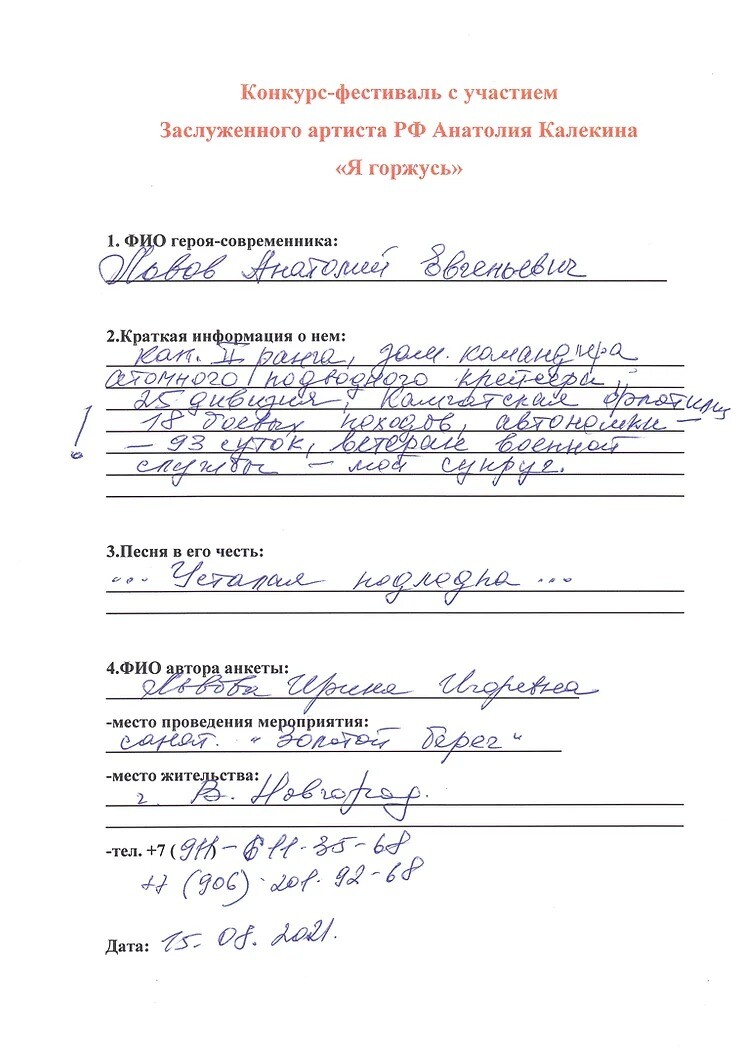 Конкурс-фестиваль с участием
Заслуженного артиста РФ Анатолия Калекина
«Я горжусь»
1. ФИО героя-современника:
Львов Анатолий Евгеньевич
2.Краткая информация о нем:
кап. II ранга, зам. командира
атомного подводного крейсера,
25 дивизия, Камчатская флотилия
! 18 боевых походов, автономки –
– 93 суток, ветеран военной
службы – мой супруг.
3.Песня в его честь:
... Усталая подлодка ...
4.ФИО автора анкеты:
Львова Ирина Игоревна
-место проведения мероприятия:
санат. "Золотой берег"
-место жительства:
г. В. Новгород.
-тел. +7 (911) – 611-35-68
+7 (906) 201-92-68
Дата: 15.08.2021.